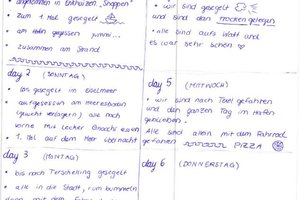 angekommen in Enkhuizen "Shoppen"
zum 1. Mal gesegelt
am Hafen gegessen mmm...
zusammen am Strand
day 2 (SONNTAG)
los gesegelt im Ijsselmeer
aufgesessen am Meeresboden
(Gewicht verlagern) alle nach
vorne mit lecker Gnocchi essen
1. Mal auf dem Meer übernachtet
day 3 (MONTAG)
bis nach Terschelling gesegelt
alle in die Stadt, rum bummeln
dann mit dem
wir sind gesegelt
und sind dann trocken gelegen
alle sind aufs Watt und
es war sehr schön
day 5 (MITTWOCH)
wir sind nach Texel gefahren
und den ganzen Tag im Hafen
geblieben.
Alle sind allein mit dem Fahrrad
gefahren. PIZZA
day 6 (DONNERSTAG)